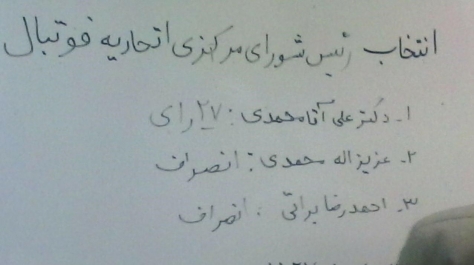 انتخاب رئیس شورای مرکزی اتحادیه فوتبال
۱- دکتر علی آقامحمدی : ۲۷ رای
۲- عزیزاله محمدی : انصراف
۳- احمدرضا براتی : انصراف